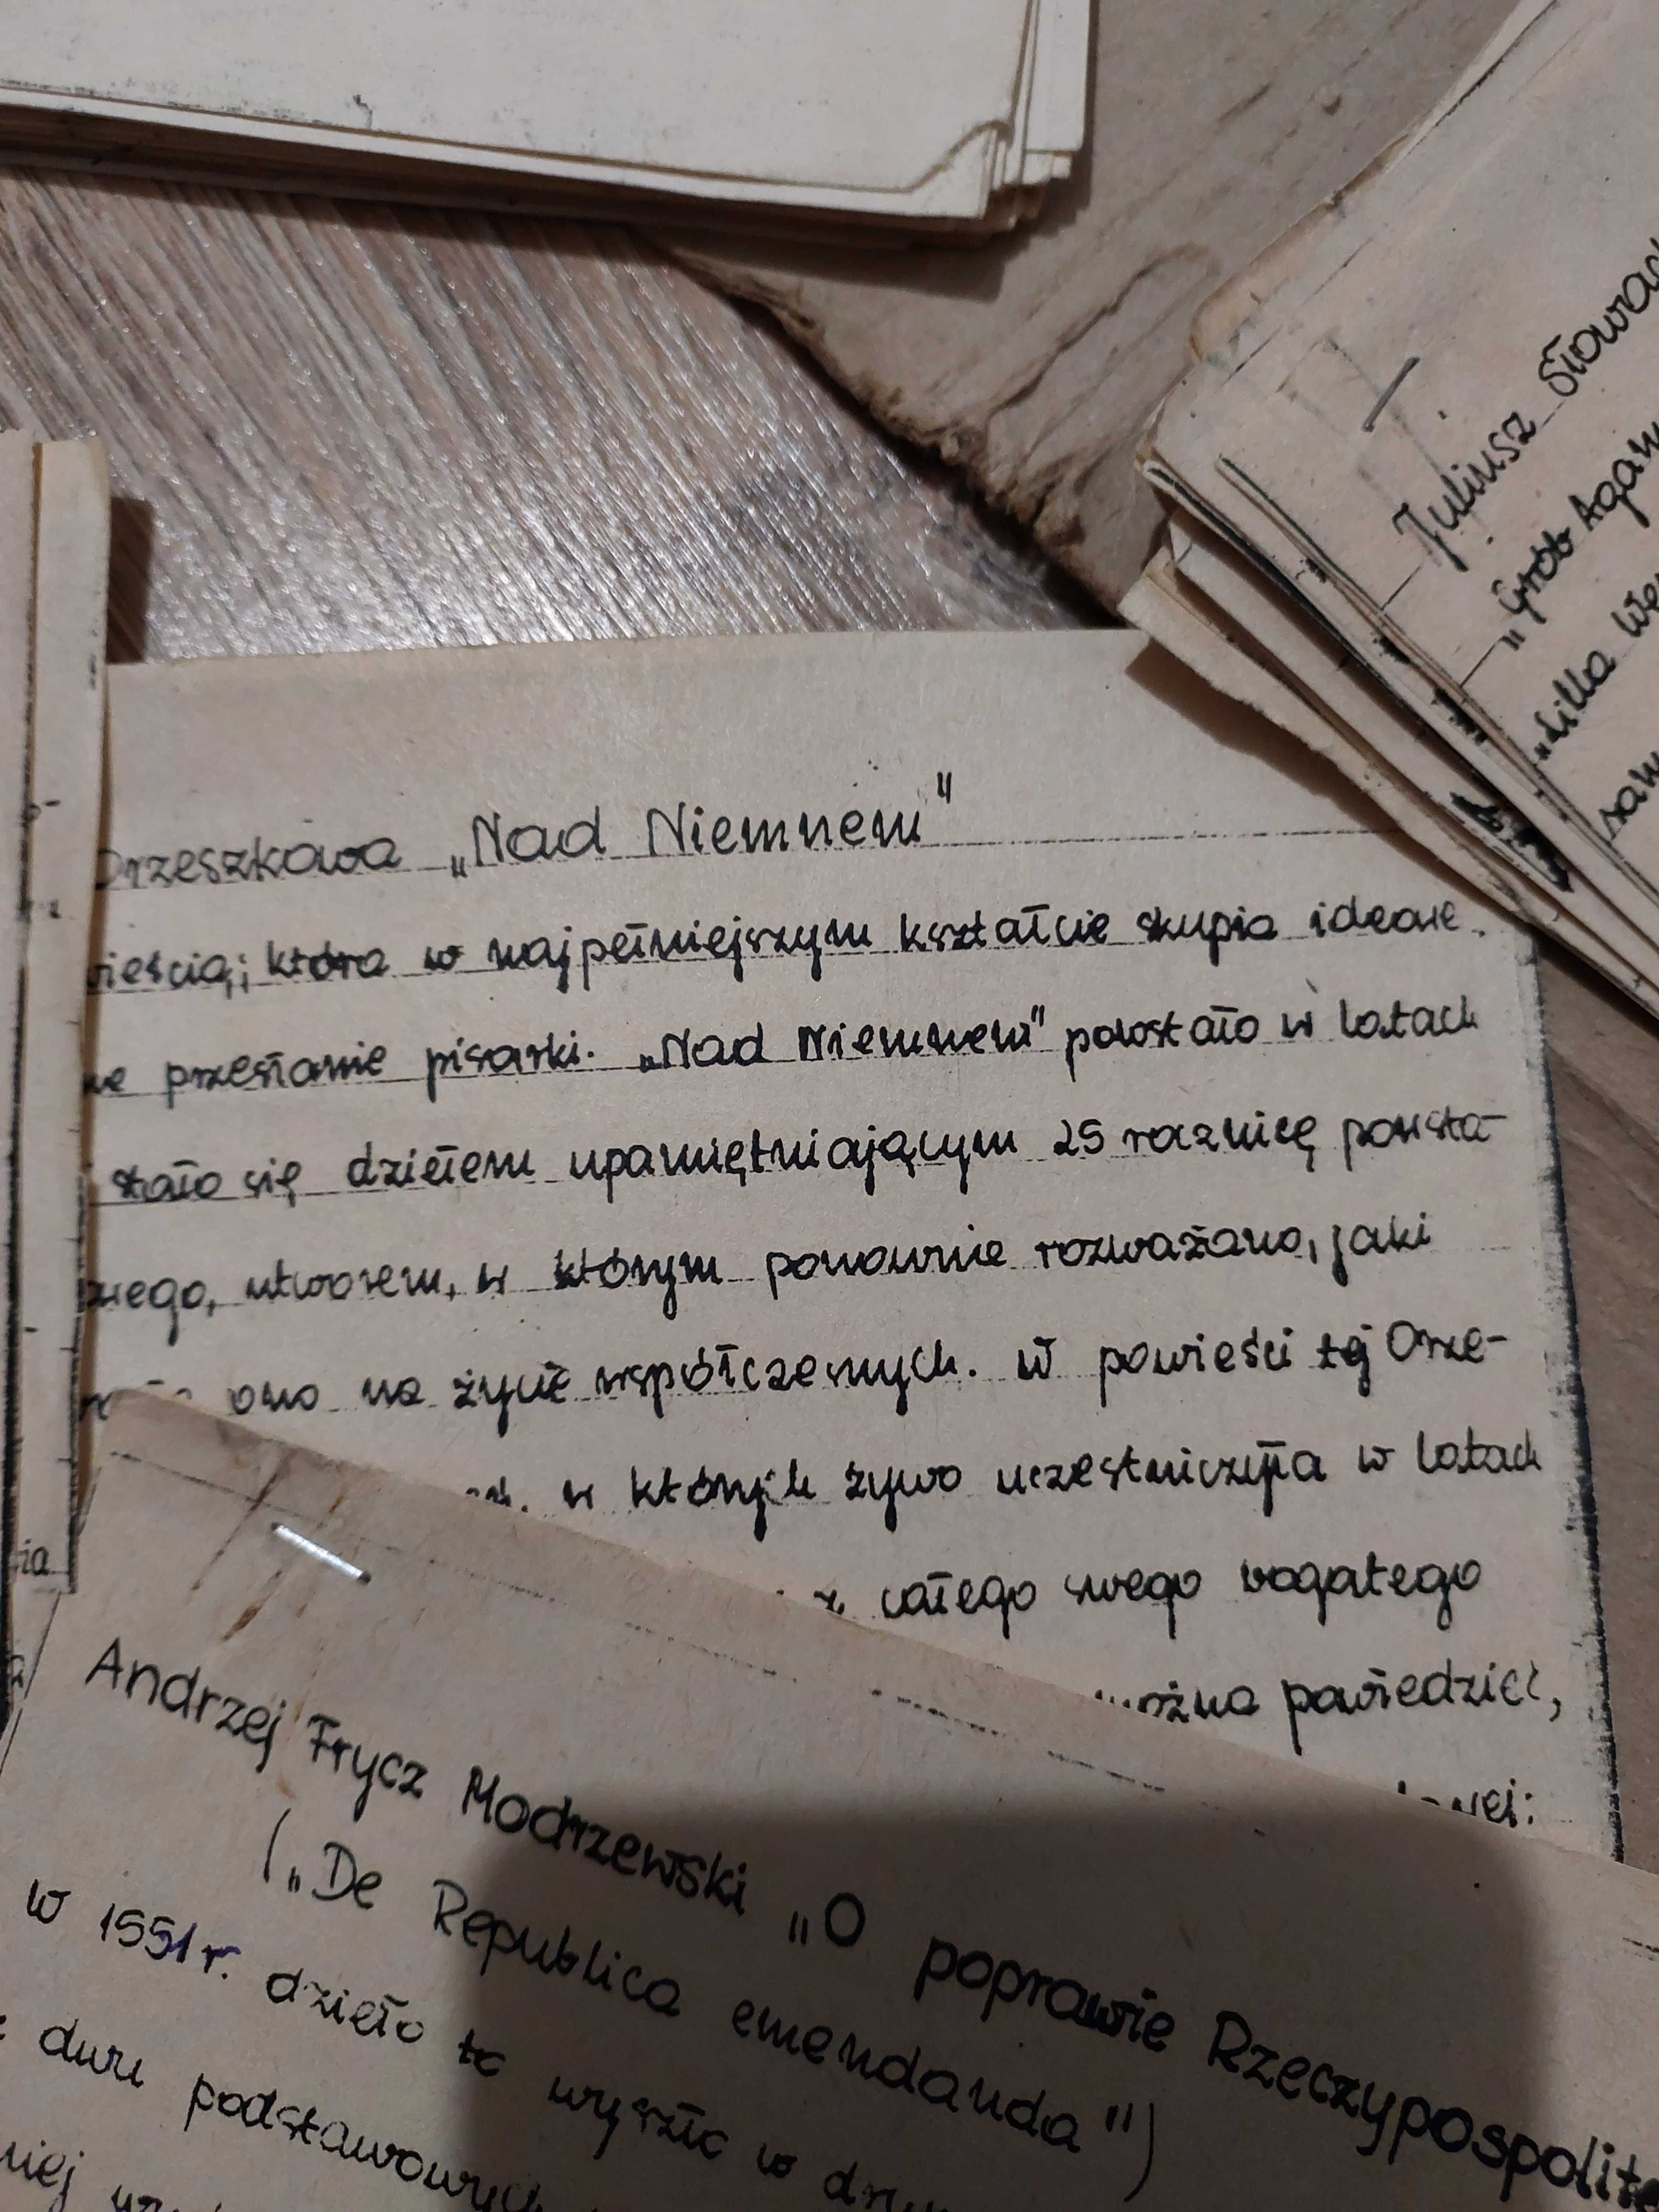 Juliusz Słowac
„Grób Agam
„Lilla We
Orzeszkowa „Nad Niemnem"
ieścią, która w najpełniejszym kształcie skupia ideowe
ne przesłanie pisarki. „Nad Niemnem" powstało w latach
stało się dziełem upamiętniającym 25 rocznicę powsta-
niego, utworem, w którym ponownie rozważano, jaki
ono na życie współczesnych. W powieści tej Orze-
w których żywo uczestniczyła w latach
z całego swego bogatego
można powiedzieć,
Andrzej Frycz Modrzewski „O poprawie Rzeczypospolite
(„De Republica emendanda")
W 1551 r. dzieło to wyszło w dru
dwu podstawowych
niej